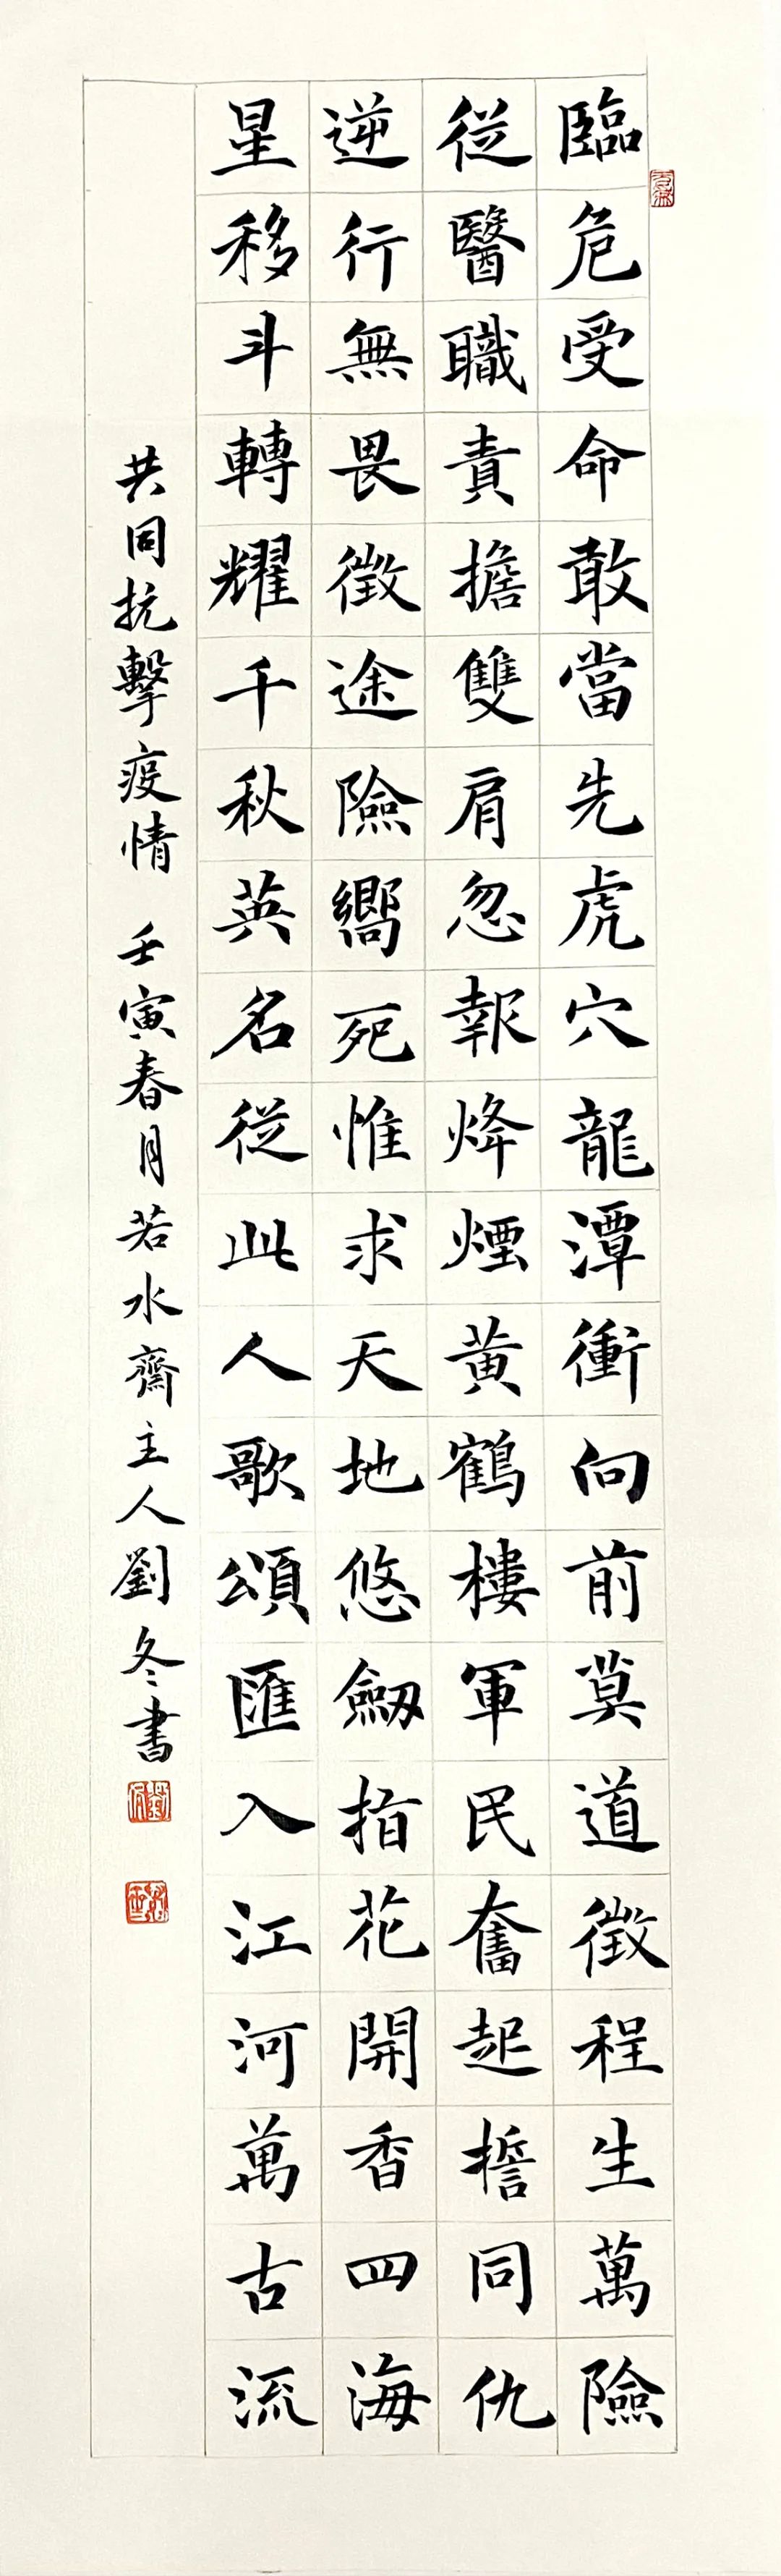 臨危受命敢當先虎穴龍潭衝向前莫道徵程生萬險
從醫職責擔雙肩忽報烽煙黃鶴樓軍民奮起擔同仇
逆行無畏徵途險嚮死惟求天地悠劔指花開香四海
星移斗轉耀千秋英名從此人歌頌匯入江河萬古流
共同抗擊疫情 壬寅春月若水齋主人劉冬書